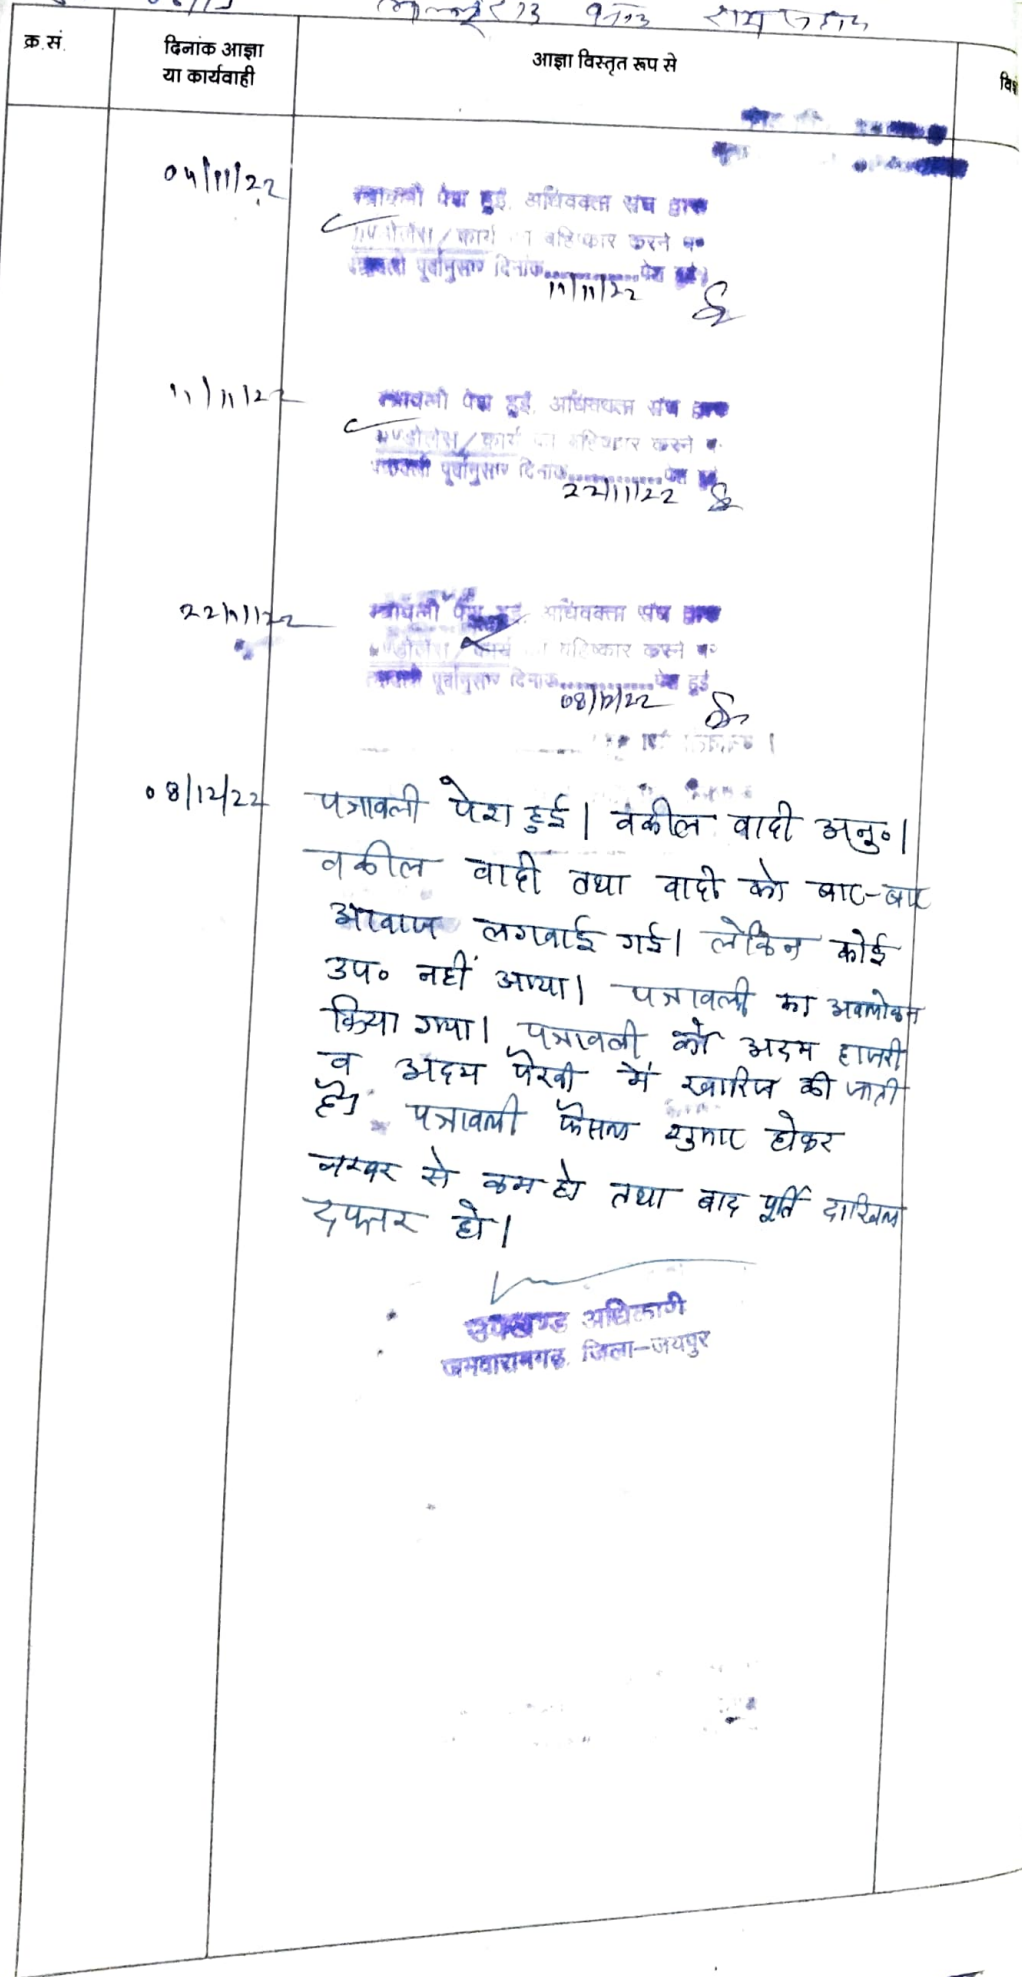 क्र.सं.
दिनांक आज्ञा
या कार्यवाही
आज्ञा विस्तृत रूप से
04/11/22
पत्रावली पेश हुई. अधिवक्ता संघ द्वारा
कार्य का बहिष्कार करने
पत्रावली पूर्वानुसार दिनांक..............पेश हुई।
11/11/22
11/11/22
पत्रावली पेश हुई. अधिवक्ता संघ द्वारा
कण्डोलेंस/कार्य का बहिष्कार करने
पत्रावली पूर्वानुसार दिनांक..............पेश हुई
22/11/22
22/11/22
पत्रावली पेश हुई. अधिवक्ता संघ द्वारा
कण्डोलेंस/कार्य का बहिष्कार करने
पत्रावली पूर्वानुसार दिनांक..............पेश हुई
08/12/22
08/12/22
पत्रावली पेश हुई। वकील वादी अनु०।
वकील वादी तथा वादी को बार-बार
आवाज लगवाई गई। लेकिन कोई
उप० नहीं आया। पत्रावली का अवलोकन
किया गया। पत्रावली को अदम हाजरी
व अदम पैरवी में खारिज की जाती
है। पत्रावली फैसल शुमार होकर
नम्बर से कम हो तथा बाद पूर्ति दाखिल
दफ्तर हो।
उपखण्ड अधिकारी
जमवारामगढ, जिला-जयपुर